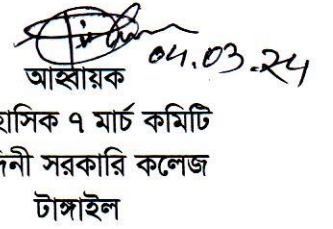 04.03.24
আহ্বায়ক
হাসিক ৭ মার্চ কমিটি
দিনী সরকারি কলেজ
টাঙ্গাইল